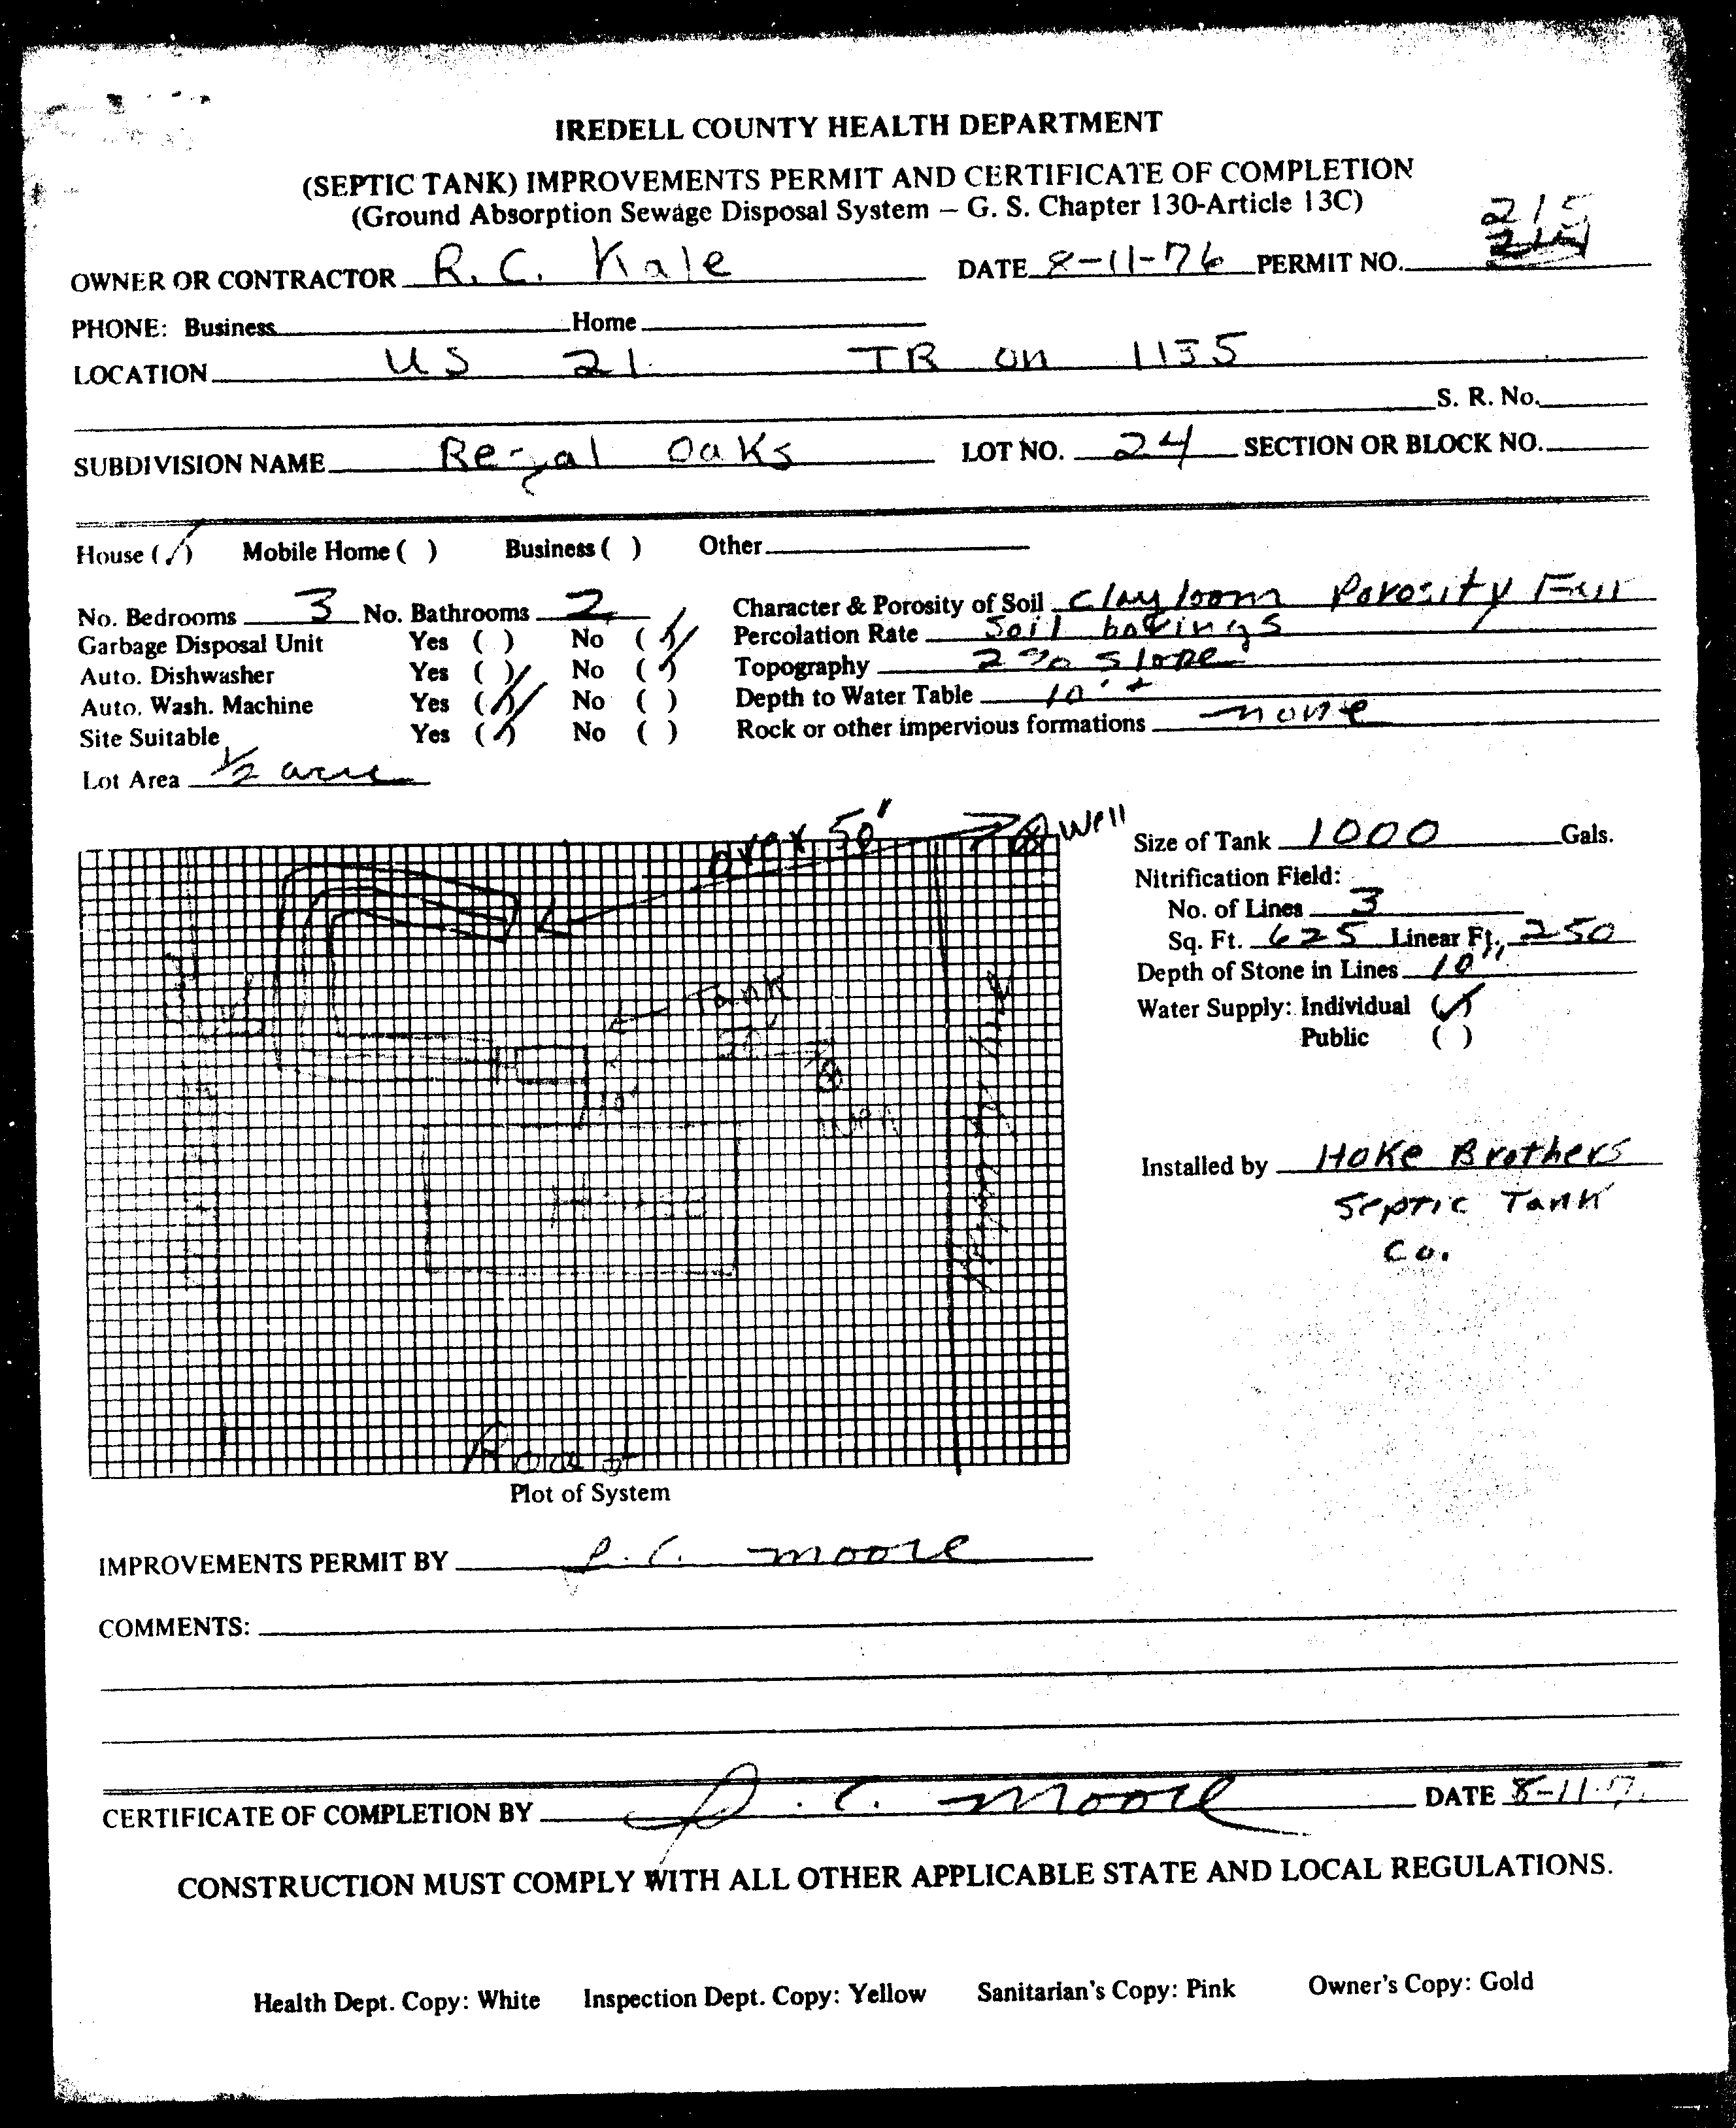 IREDELL COUNTY HEALTH DEPARTMENT
(SEPTIC TANK) IMPROVEMENTS PERMIT AND CERTIFICATE OF COMPLETION
(Ground Absorption Sewage Disposal System – G. S. Chapter 130-Article 13C)
215
OWNER OR CONTRACTOR R. C. Kale DATE 8-11-76 PERMIT NO.
PHONE: Business Home
LOCATION US 21 TR on 1135
S. R. No.
SUBDIVISION NAME Regal Oaks LOT NO. 24 SECTION OR BLOCK NO.
House (✓) Mobile Home ( ) Business ( ) Other
No. Bedrooms 3 No. Bathrooms 2
Garbage Disposal Unit Yes ( ) No (✓)
Auto. Dishwasher Yes ( ) No (✓)
Auto. Wash. Machine Yes (✓) No ( )
Site Suitable Yes (✓) No ( )
Lot Area 1/2 acre
Character & Porosity of Soil Clay loam Porosity Fair
Percolation Rate Soil borings
Topography 2% slope
Depth to Water Table 10'+
Rock or other impervious formations none
over 50' Well
Tank
Size of Tank 1000 Gals.
Nitrification Field:
No. of Lines 3
Sq. Ft. 625 Linear Ft. 250
Depth of Stone in Lines 10"
Water Supply: Individual (✓)
Public ( )
Installed by Hoke Brothers
Septic Tank
Co.
Plot of System
IMPROVEMENTS PERMIT BY Moore
COMMENTS:
CERTIFICATE OF COMPLETION BY C. Moore DATE 8-11-7
CONSTRUCTION MUST COMPLY WITH ALL OTHER APPLICABLE STATE AND LOCAL REGULATIONS.
Health Dept. Copy: White Inspection Dept. Copy: Yellow Sanitarian's Copy: Pink Owner's Copy: Gold